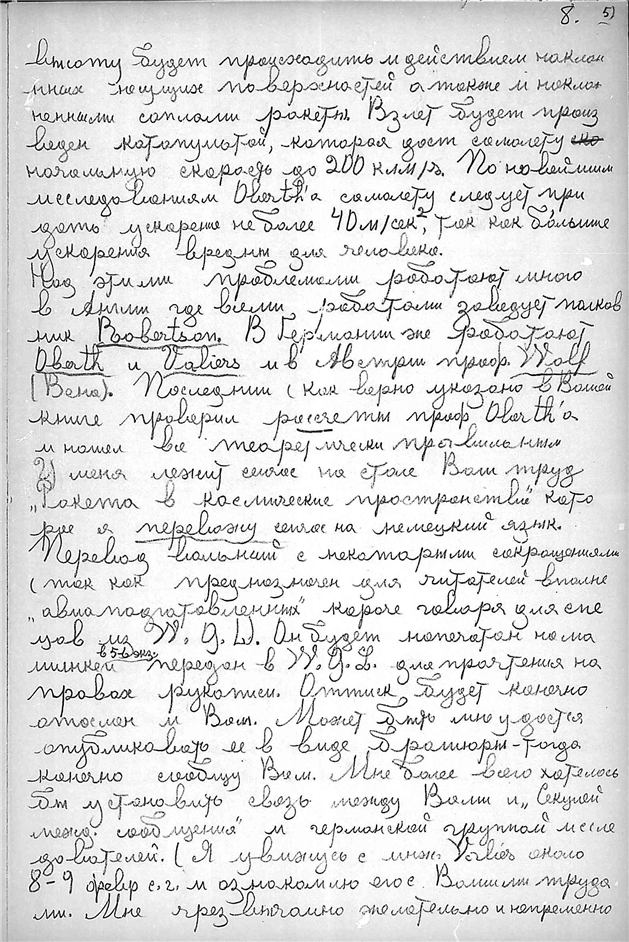 8. 5)
высоту будет происходить и действием наклон
нных несущих поверхностей а также и накло
ненными соплами ракеты. Взлет будет произ
веден катапультой, которая даст самолету
начальную скорость до 200 клм/ч. По новейшим
исследованиям Oberth'a самолету следует при
дать ускорение не более 40 м/сек², так как большие
ускорения вредны для человека.
Над этими проблемами работают много
в Англии где всеми работами заведует полков
ник Robertson. В Германии же работают
Oberth и Valiers и в Австрии проф. Wolf
(Вена). Последний (как верно указано в Вашей
книге проверил рассчеты проф Oberth'a
и нашел все теоретически правильным
У меня лежит сейчас на столе Ваш труд
„Ракета в космические пространства" кото
рое я перевожу сейчас на немецкий язык.
Перевод вольный с некоторыми сокращениями
(так как предназначен для читателей вполне
„авиаподготовленных" короче говоря для спе
цов из W. G. L. Он будет напечатан на ма
шинкей в 5-6 экз. передан в W. G. L. для прочтения на
правах рукописи. Оттиск будет конечно
отослан и Вам. Может быть мне удастся
опубликовать ее в виде брошюры - тогда
конечно сообщу Вам. Мне более всего хотелось
бы установить связь между Вами и „Секцией
межд. сообщения" и германской группой иссле
дователей. (Я увижусь с инж. Valier около
8-9 февр с. г. и ознакомлю его с Вашими труда
ми. Мне чрезвычайно желательно и непременно